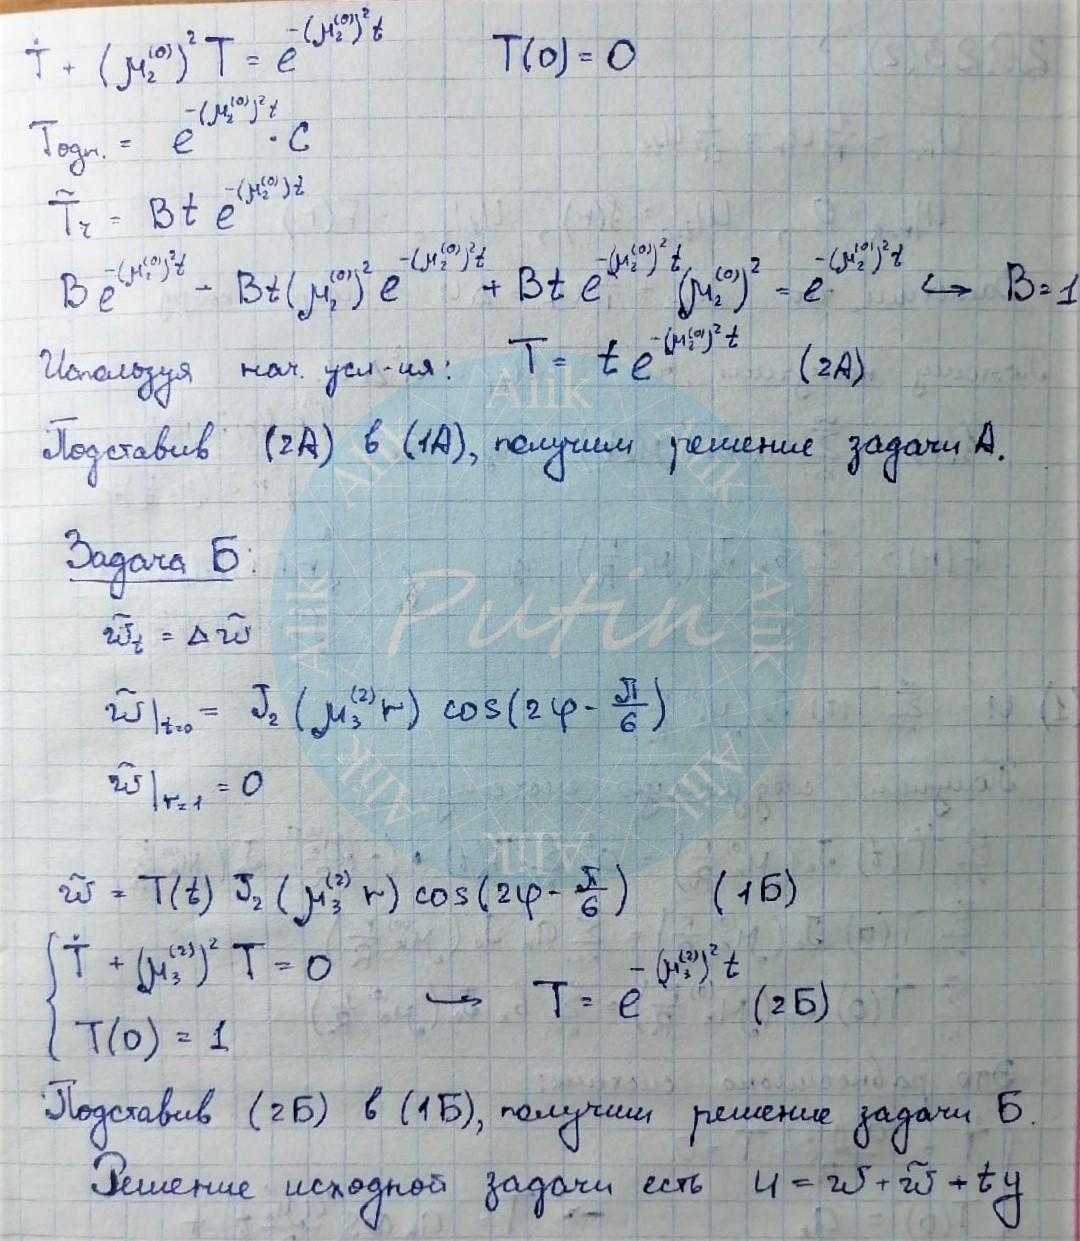 Ṫ + (μ₂⁽⁰⁾)² T = e^{-(μ₂⁽⁰⁾)² t} T(0) = 0
T_{одн.} = e^{-(μ₂⁽⁰⁾)² t} · C
T̃_ч = B t e^{-(μ₂⁽⁰⁾) t}
B e^{-(μ₂⁽⁰⁾)² t} - B t (μ₂⁽⁰⁾)² e^{-(μ₂⁽⁰⁾)² t} + B t e^{-(μ₂⁽⁰⁾)² t} (μ₂⁽⁰⁾)² = e^{-(μ₂⁽⁰⁾)² t} ↪ B = 1
Используя нач. усл-ия: T = t e^{-(μ₂⁽⁰⁾)² t} (2А)
Подставив (2А) в (1А), получим решение задачи А.
Задача Б:
w̃_t = Δ w̃
w̃|_{t=0} = J₂ (μ₃⁽²⁾ r) cos(2φ - π/6)
w̃|_{r=1} = 0
w̃ = T(t) J₂ (μ₃⁽²⁾ r) cos(2φ - π/6) (1Б)
{ Ṫ + (μ₃⁽²⁾)² T = 0
T(0) = 1 ↪ T = e^{-(μ₃⁽²⁾)² t} (2Б)
Подставив (2Б) в (1Б), получим решение задачи Б.
Решение исходной задачи есть u = w + w̃ + ty
Alik
Alik
Alik
Alik
Alik
Alik
Alik
Alik
Putin